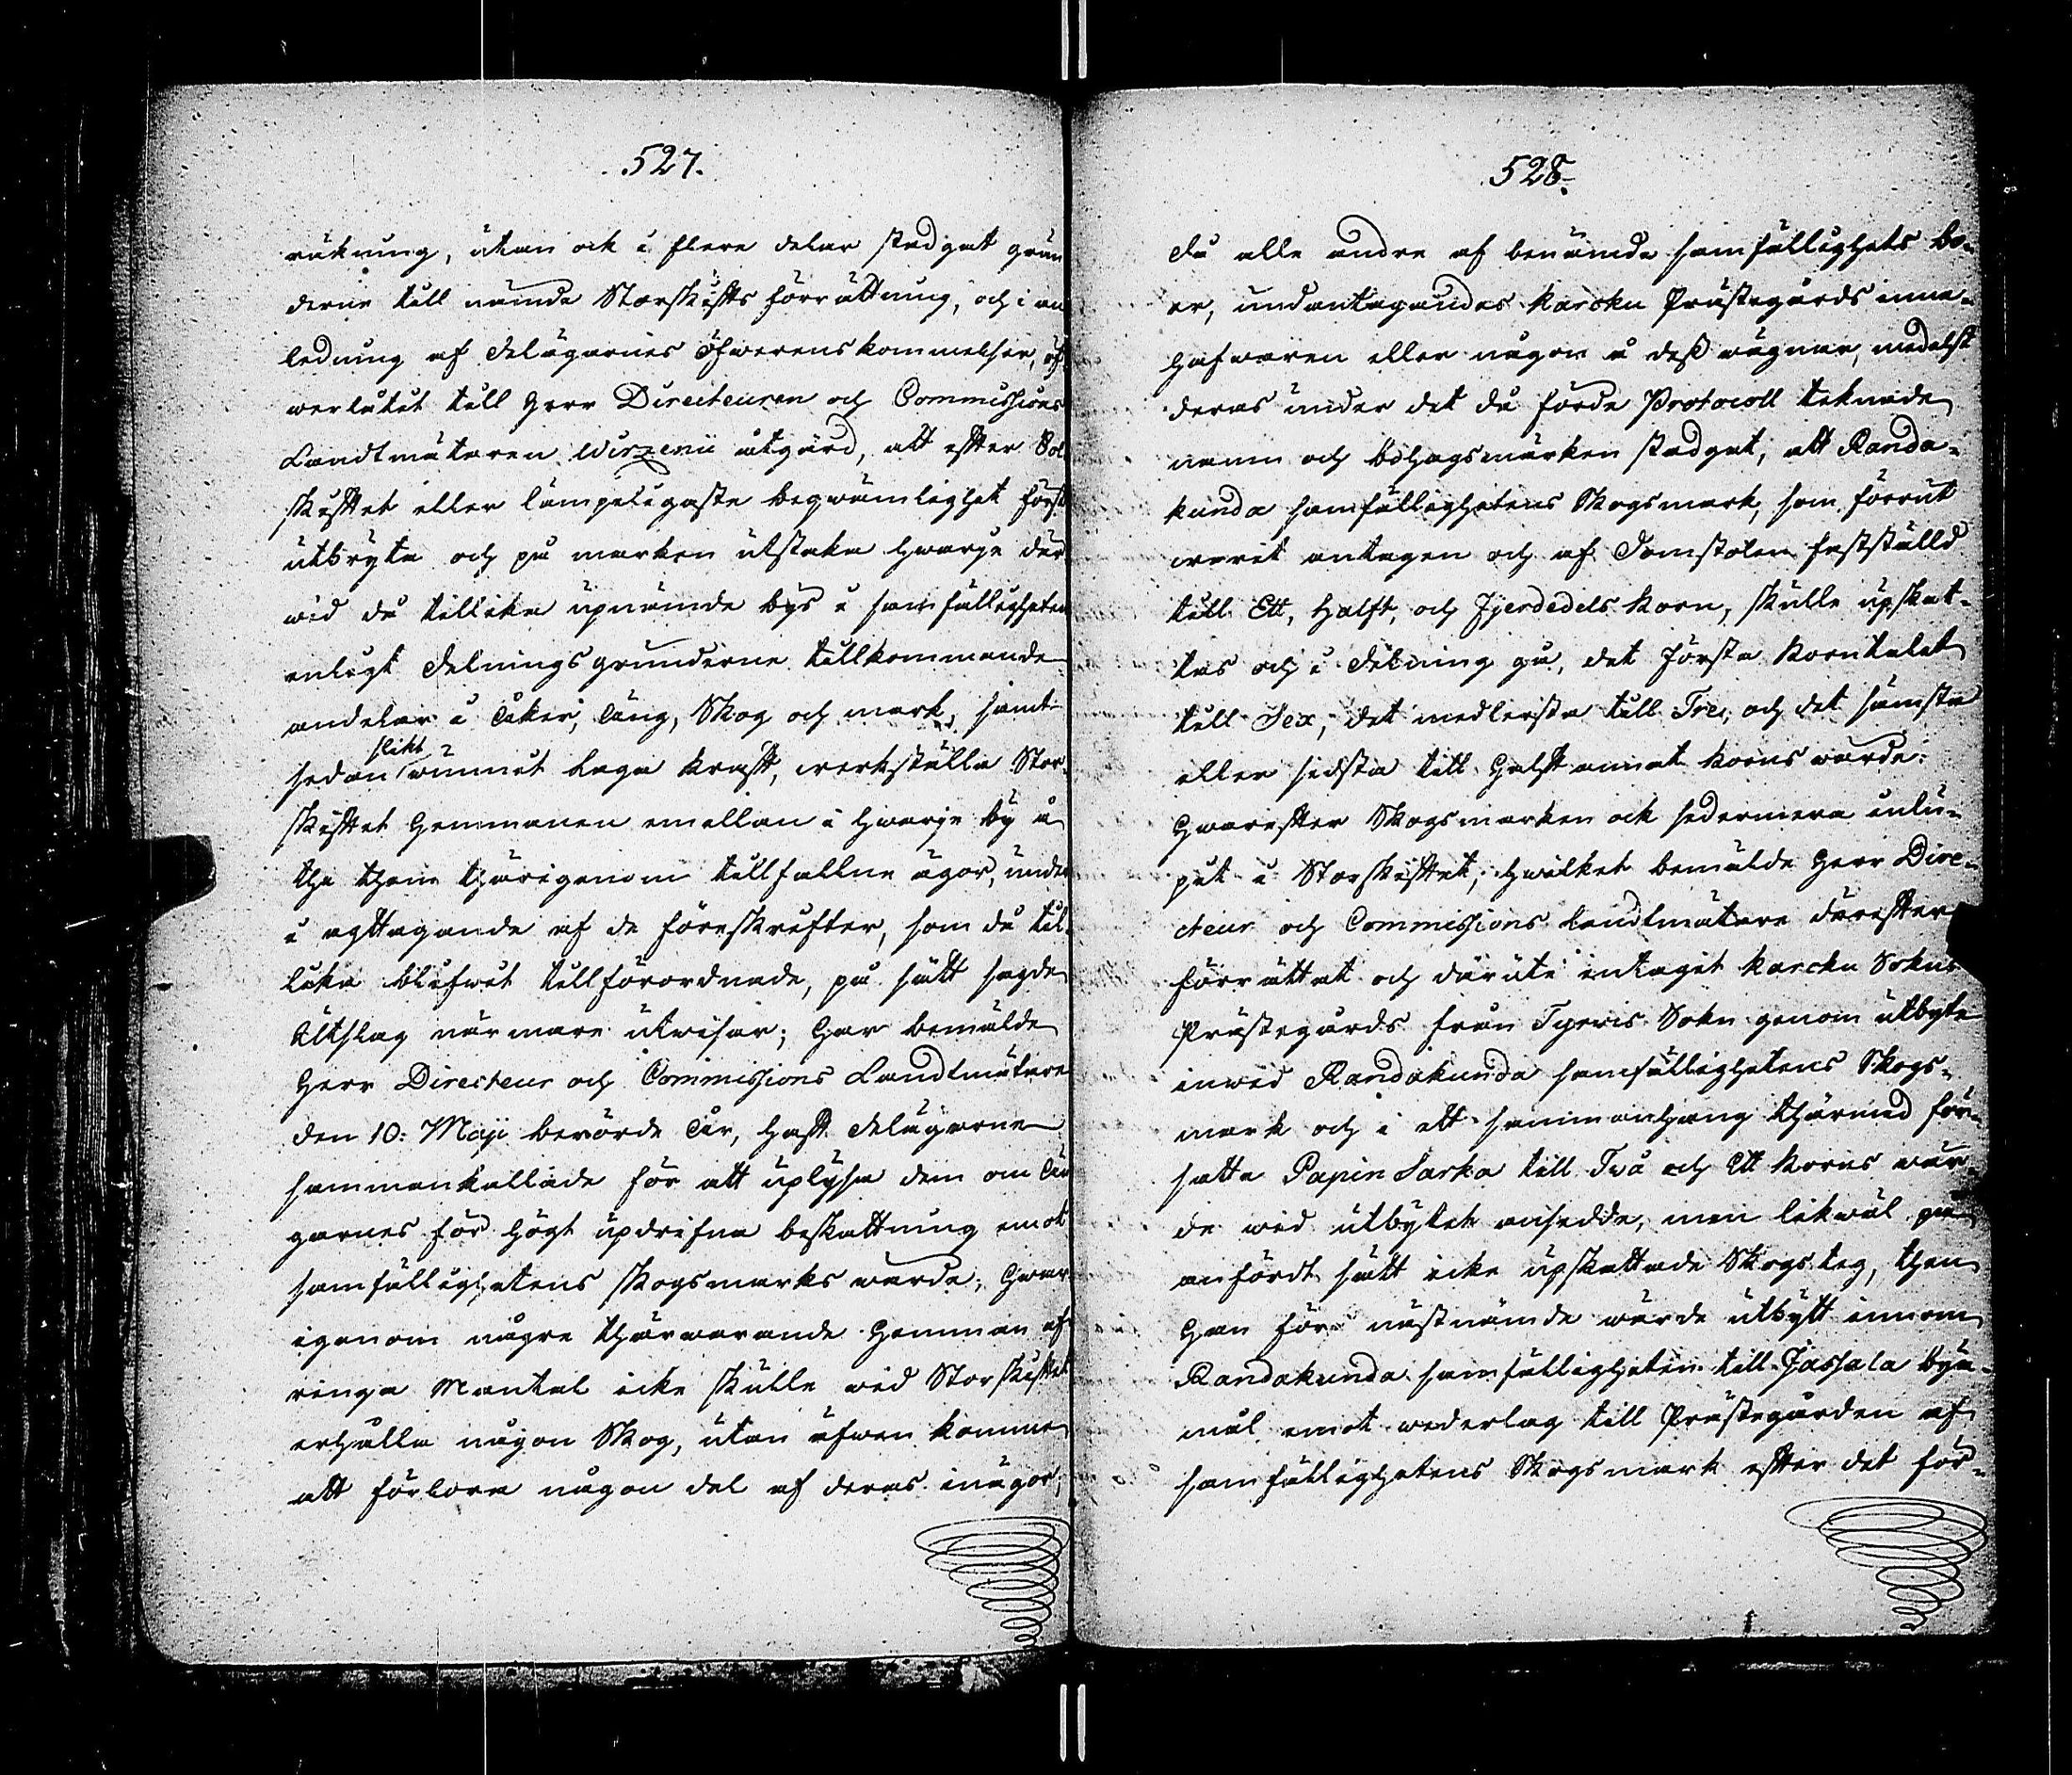 527.
räkning, utan ock i flere delar stadgat grun
derne till nämde Storskifts förrättning, och i an
ledning af Delägarnes öfwerenskommelser, öf
werlåtit till Herr Directeuren och Commissions
Landtmätaren Wirzenii åtgärd, att efter Sol
skiftet eller lämpeligaste beqwämlighet först
utbryta och på marken utstaka hwarje der
wid då tillika upnämde bys i samfälligheten
enligt delningsgrunderne tillkommande
andelar i åker, äng, Skog och mark, samt
sedan slikt wunnit laga kraft, werkställa Stor
skiftet Hemmanen emellan i hwarje by å
the them thärigenom tillfallne ägor, under
i agttagande af de föreskrifter, som då til
lika blifwit tillförordnade, på sätt sagde
Utslag närmare utwisar; Har bemälde
Herr Directeur och Commissions Landtmätare
den 10: Maji berörde år, haft delägarne
sammankallade för att uplysa dem om än
garnes för högt updrifna beskattning emot
samfällighetens skogsmarks wärde, hwar
igenom någre thärwarande Hemman af
ringa Mantal icke skulle wid Storskiftet
erhålla någon Skog, utan äfwen komma
att förlora någon del af deras inägor,
528.
då alle andre af benämde samfällighets bo-
er, undantagandes Karcku Prästegårds inne-
hafwaren eller någon å dess wägnar, medelst
deras under det då förde Protocoll teknade
namn och bohagsmärken stadgat, att Randa-
kunda samfällighetens Skogsmark, som förrut
warit antagen och af Domstolen fastställd
till Ett, Halft, och Fjerdedels korn, skulle upskat-
tas och i delning gå, det första korntalet
till Sex, det medlersta till Tre, och det sämsta
eller sidsta till halftannat korns wärde:
Hwarefter Skogsmarken ock sedermera inlu-
pit i Storskiftet, hwilket bemälde Herr Dire-
cteur och Commissions Landtmätare derefter
förrättat och däruti intagit Karcku Sokns
Prästegårds från Tyrwis Sokn genom utbyte
inwid Randakunda samfällighetens Skogs-
mark och i ett sammanhang thärmed för-
satta Papin Sarka till Två och Ett korns wär-
de wid utbytet ansedde, men likwäl på
anfördt sätt icke upskattade Skogsteg, then
han för nästnämde wärde utbytt innom
Randakunda samfälligheten till Jassala bya-
mål emot wederlag till Prästegården af
samfällighetens Skogsmark efter det för-